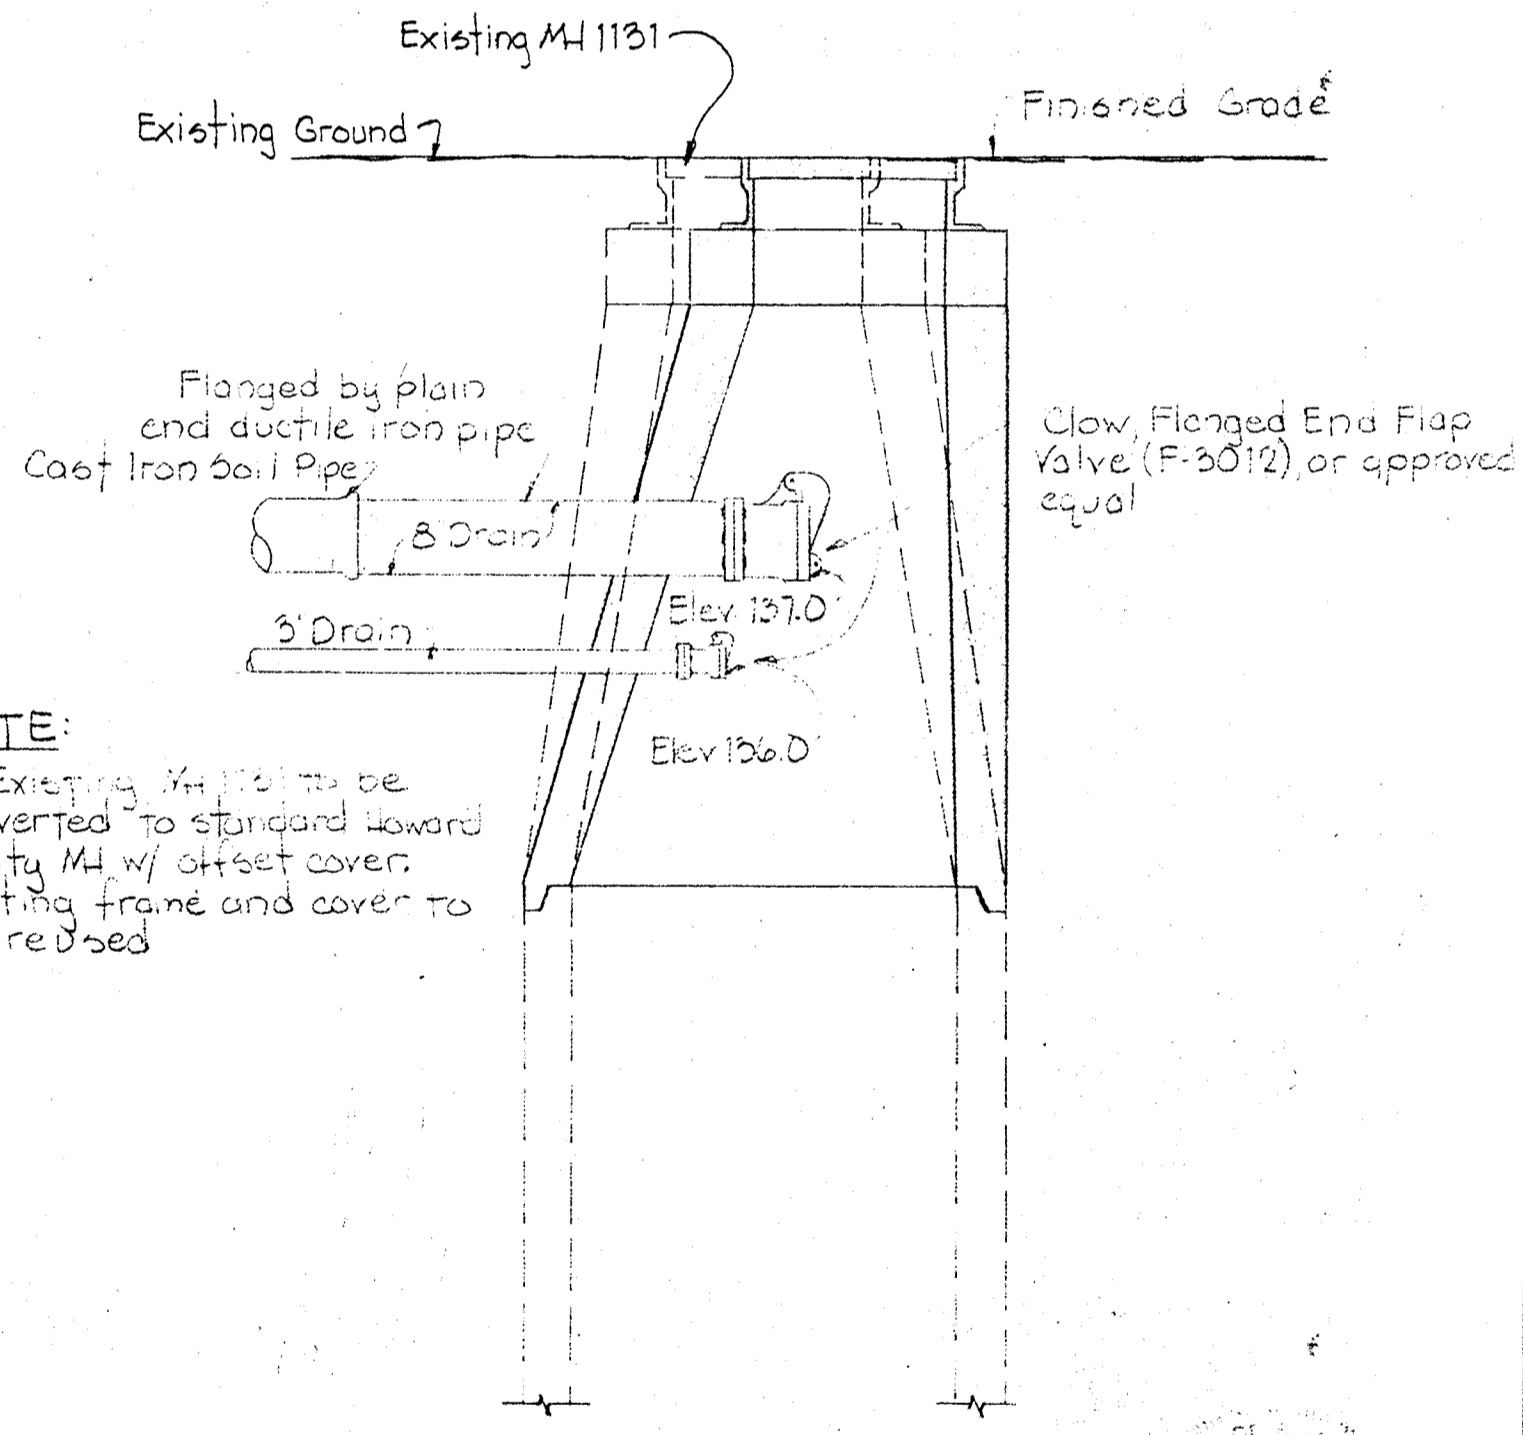 Existing MH 1131
Existing Ground
Finished Grade
Flanged by plain
end ductile iron pipe
Cast Iron Soil Pipe
Clow, Flanged End Flap
Valve (F-3012), or approved
equal
8" Drain
Elev. 137.0'
3" Drain
Elev 136.0'
TE:
Existing MH 1131 to be
verted to standard Howard
ty MH w/ offset cover.
ting frame and cover to
reused